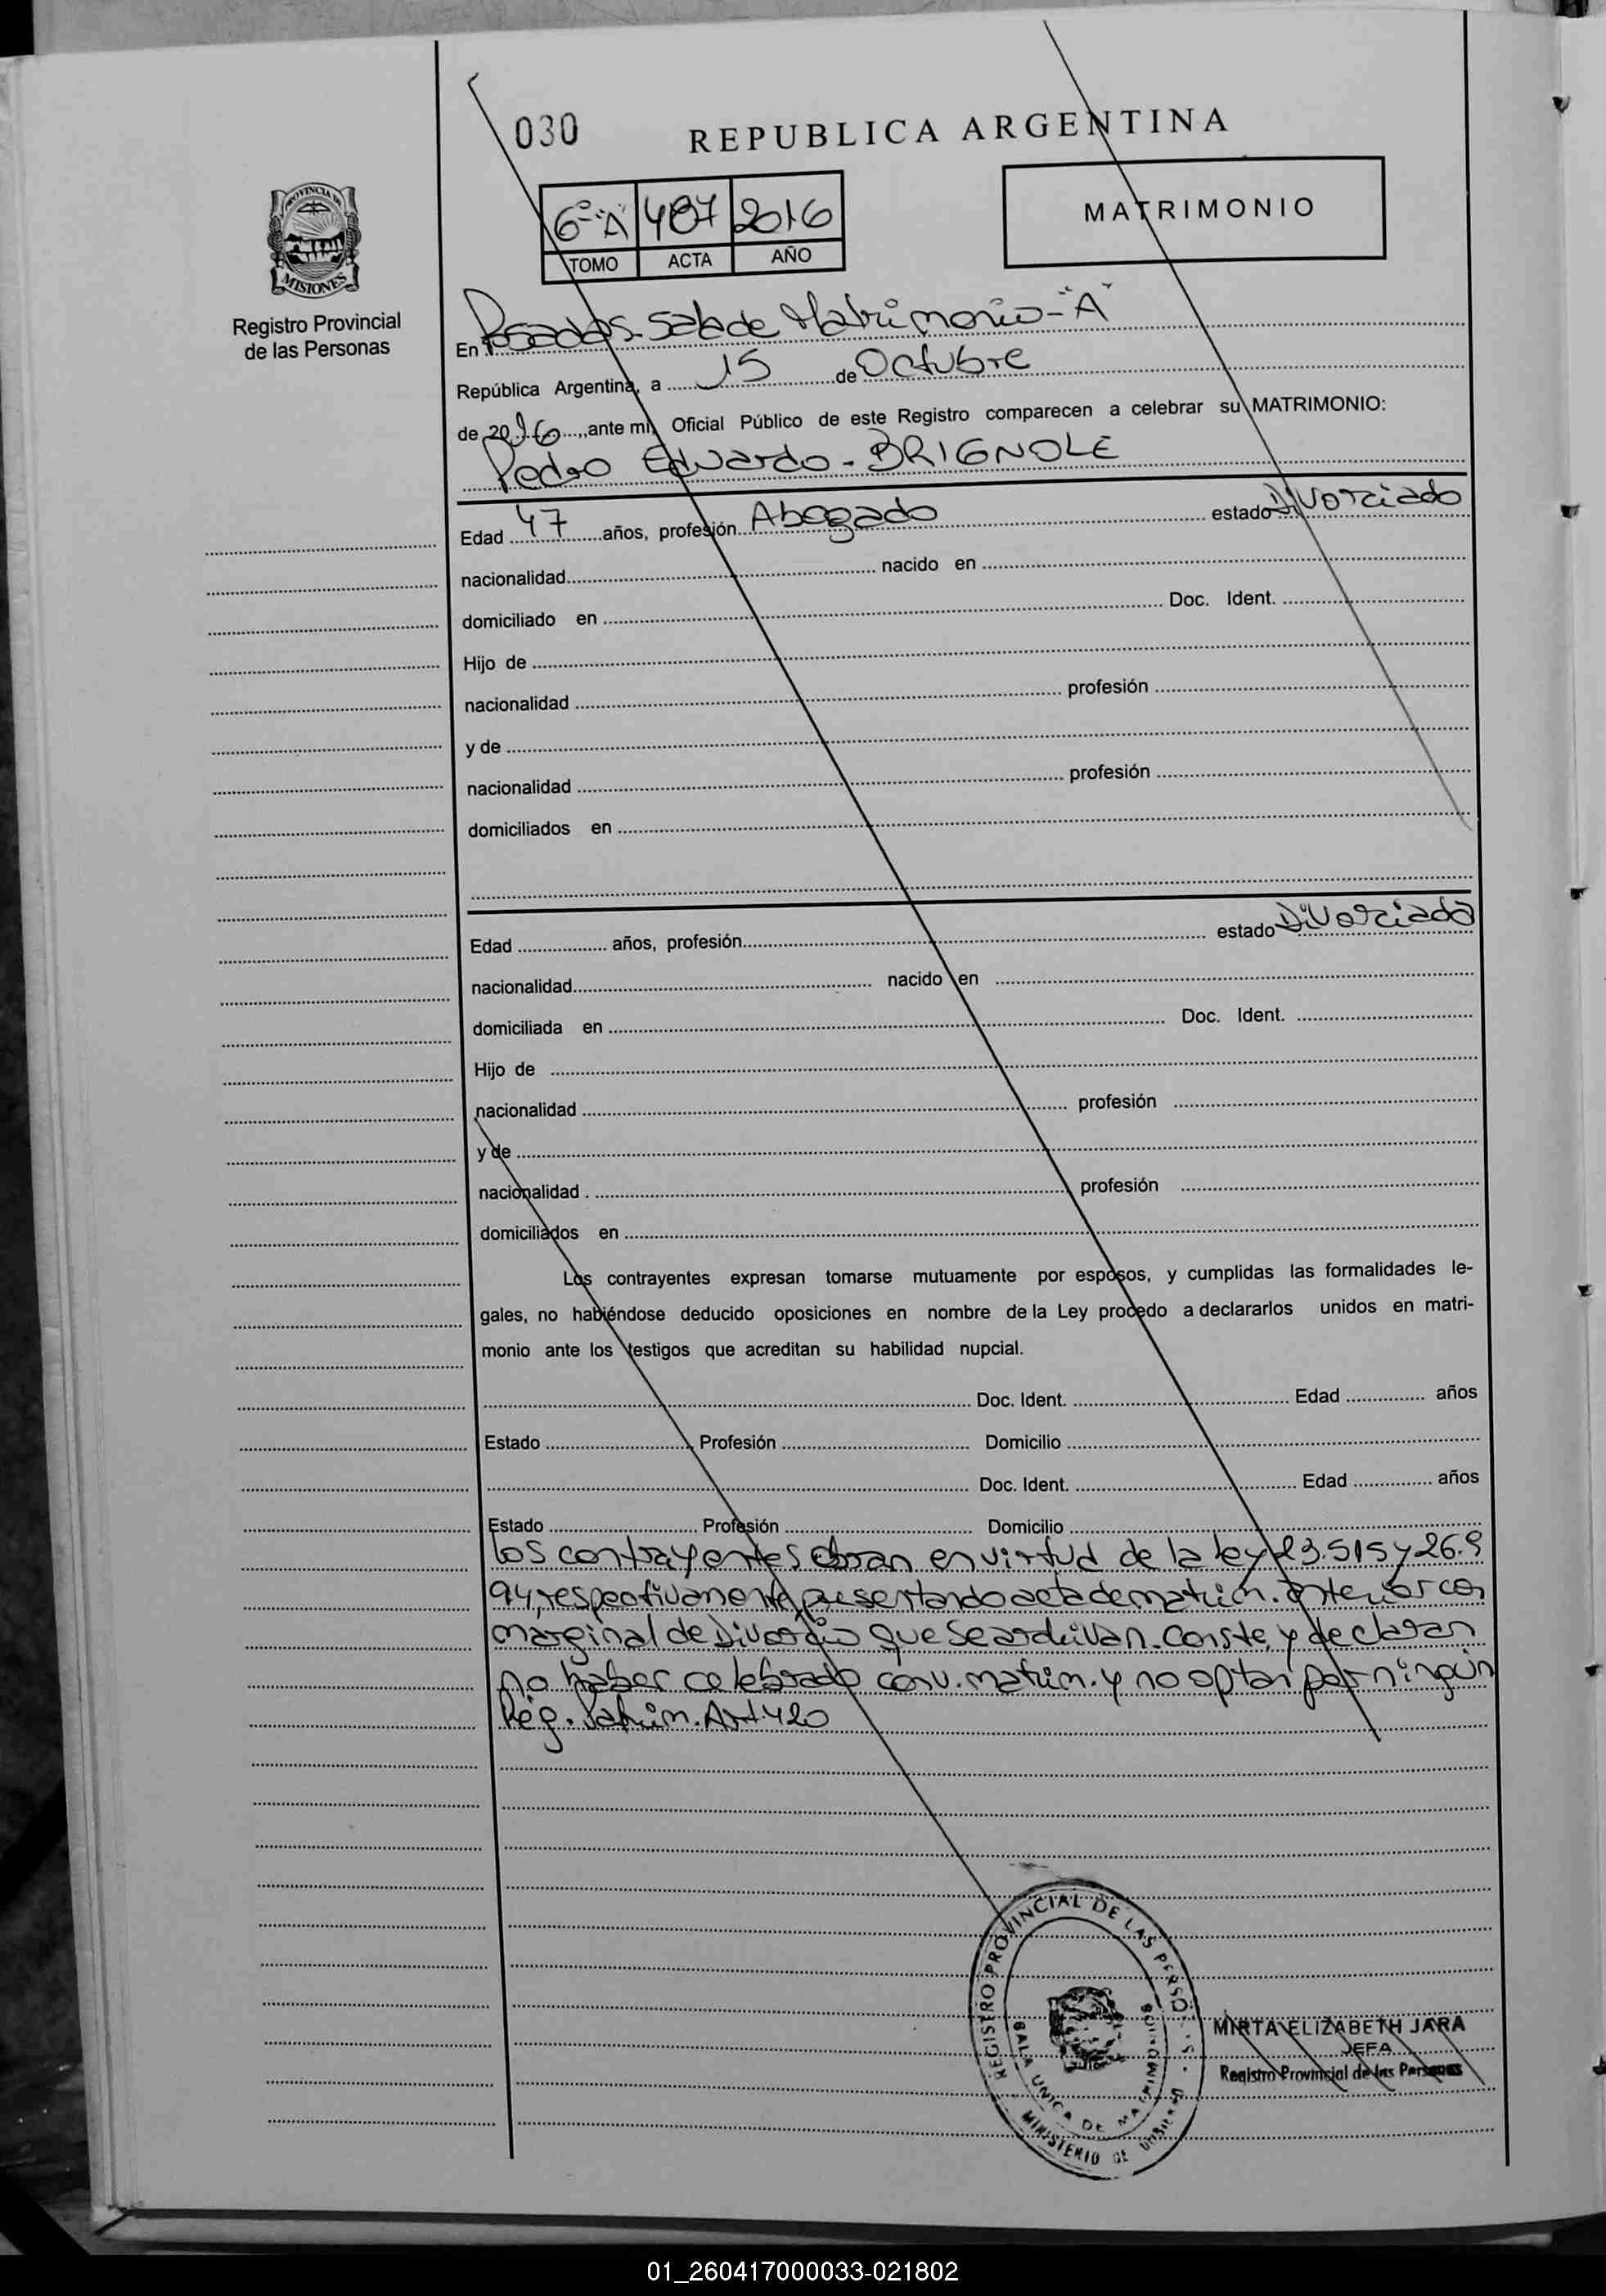 030
REPUBLICA ARGENTINA
6º "A" 487 2016
TOMO ACTA AÑO
MATRIMONIO
PROVINCIA DE
MISIONES
Registro Provincial
de las Personas
En Posadas - Sala de Matrimonio - "A"
República Argentina, a 15 de Octubre
de 2016, ante mí, Oficial Público de este Registro comparecen a celebrar su MATRIMONIO:
Pedro Eduardo - BRIGNOLE
Edad 47 años, profesión Abogado estado Divorciado
nacionalidad nacido en
domiciliado en Doc. Ident.
Hijo de
nacionalidad profesión
y de
nacionalidad profesión
domiciliados en
Edad años, profesión estado Divorciada
nacionalidad nacido en
domiciliada en Doc. Ident.
Hijo de
nacionalidad profesión
y de
nacionalidad profesión
domiciliados en
Los contrayentes expresan tomarse mutuamente por esposos, y cumplidas las formalidades le-
gales, no habiéndose deducido oposiciones en nombre de la Ley procedo a declararlos unidos en matri-
monio ante los testigos que acreditan su habilidad nupcial.
Doc. Ident. Edad años
Estado Profesión Domicilio
Doc. Ident. Edad años
Estado Profesión Domicilio
los contrayentes obran en virtud de la ley 23.515 y 26.9
94, respectivamente, presentando acta de matrim. anterior con
marginal de Divorcio que se archivan. Conste, y declaran
no haber celebrado conv. matrim. y no optar por ningún
Rég. Patrim. Art. 420
REGISTRO PROVINCIAL DE LAS PERSO
SALA UNICA DE MATRIMONIOS
MINISTERIO DE
MIRTA ELIZABETH JARA
JEFA
Registro Provincial de las Personas
01_260417000033-021802